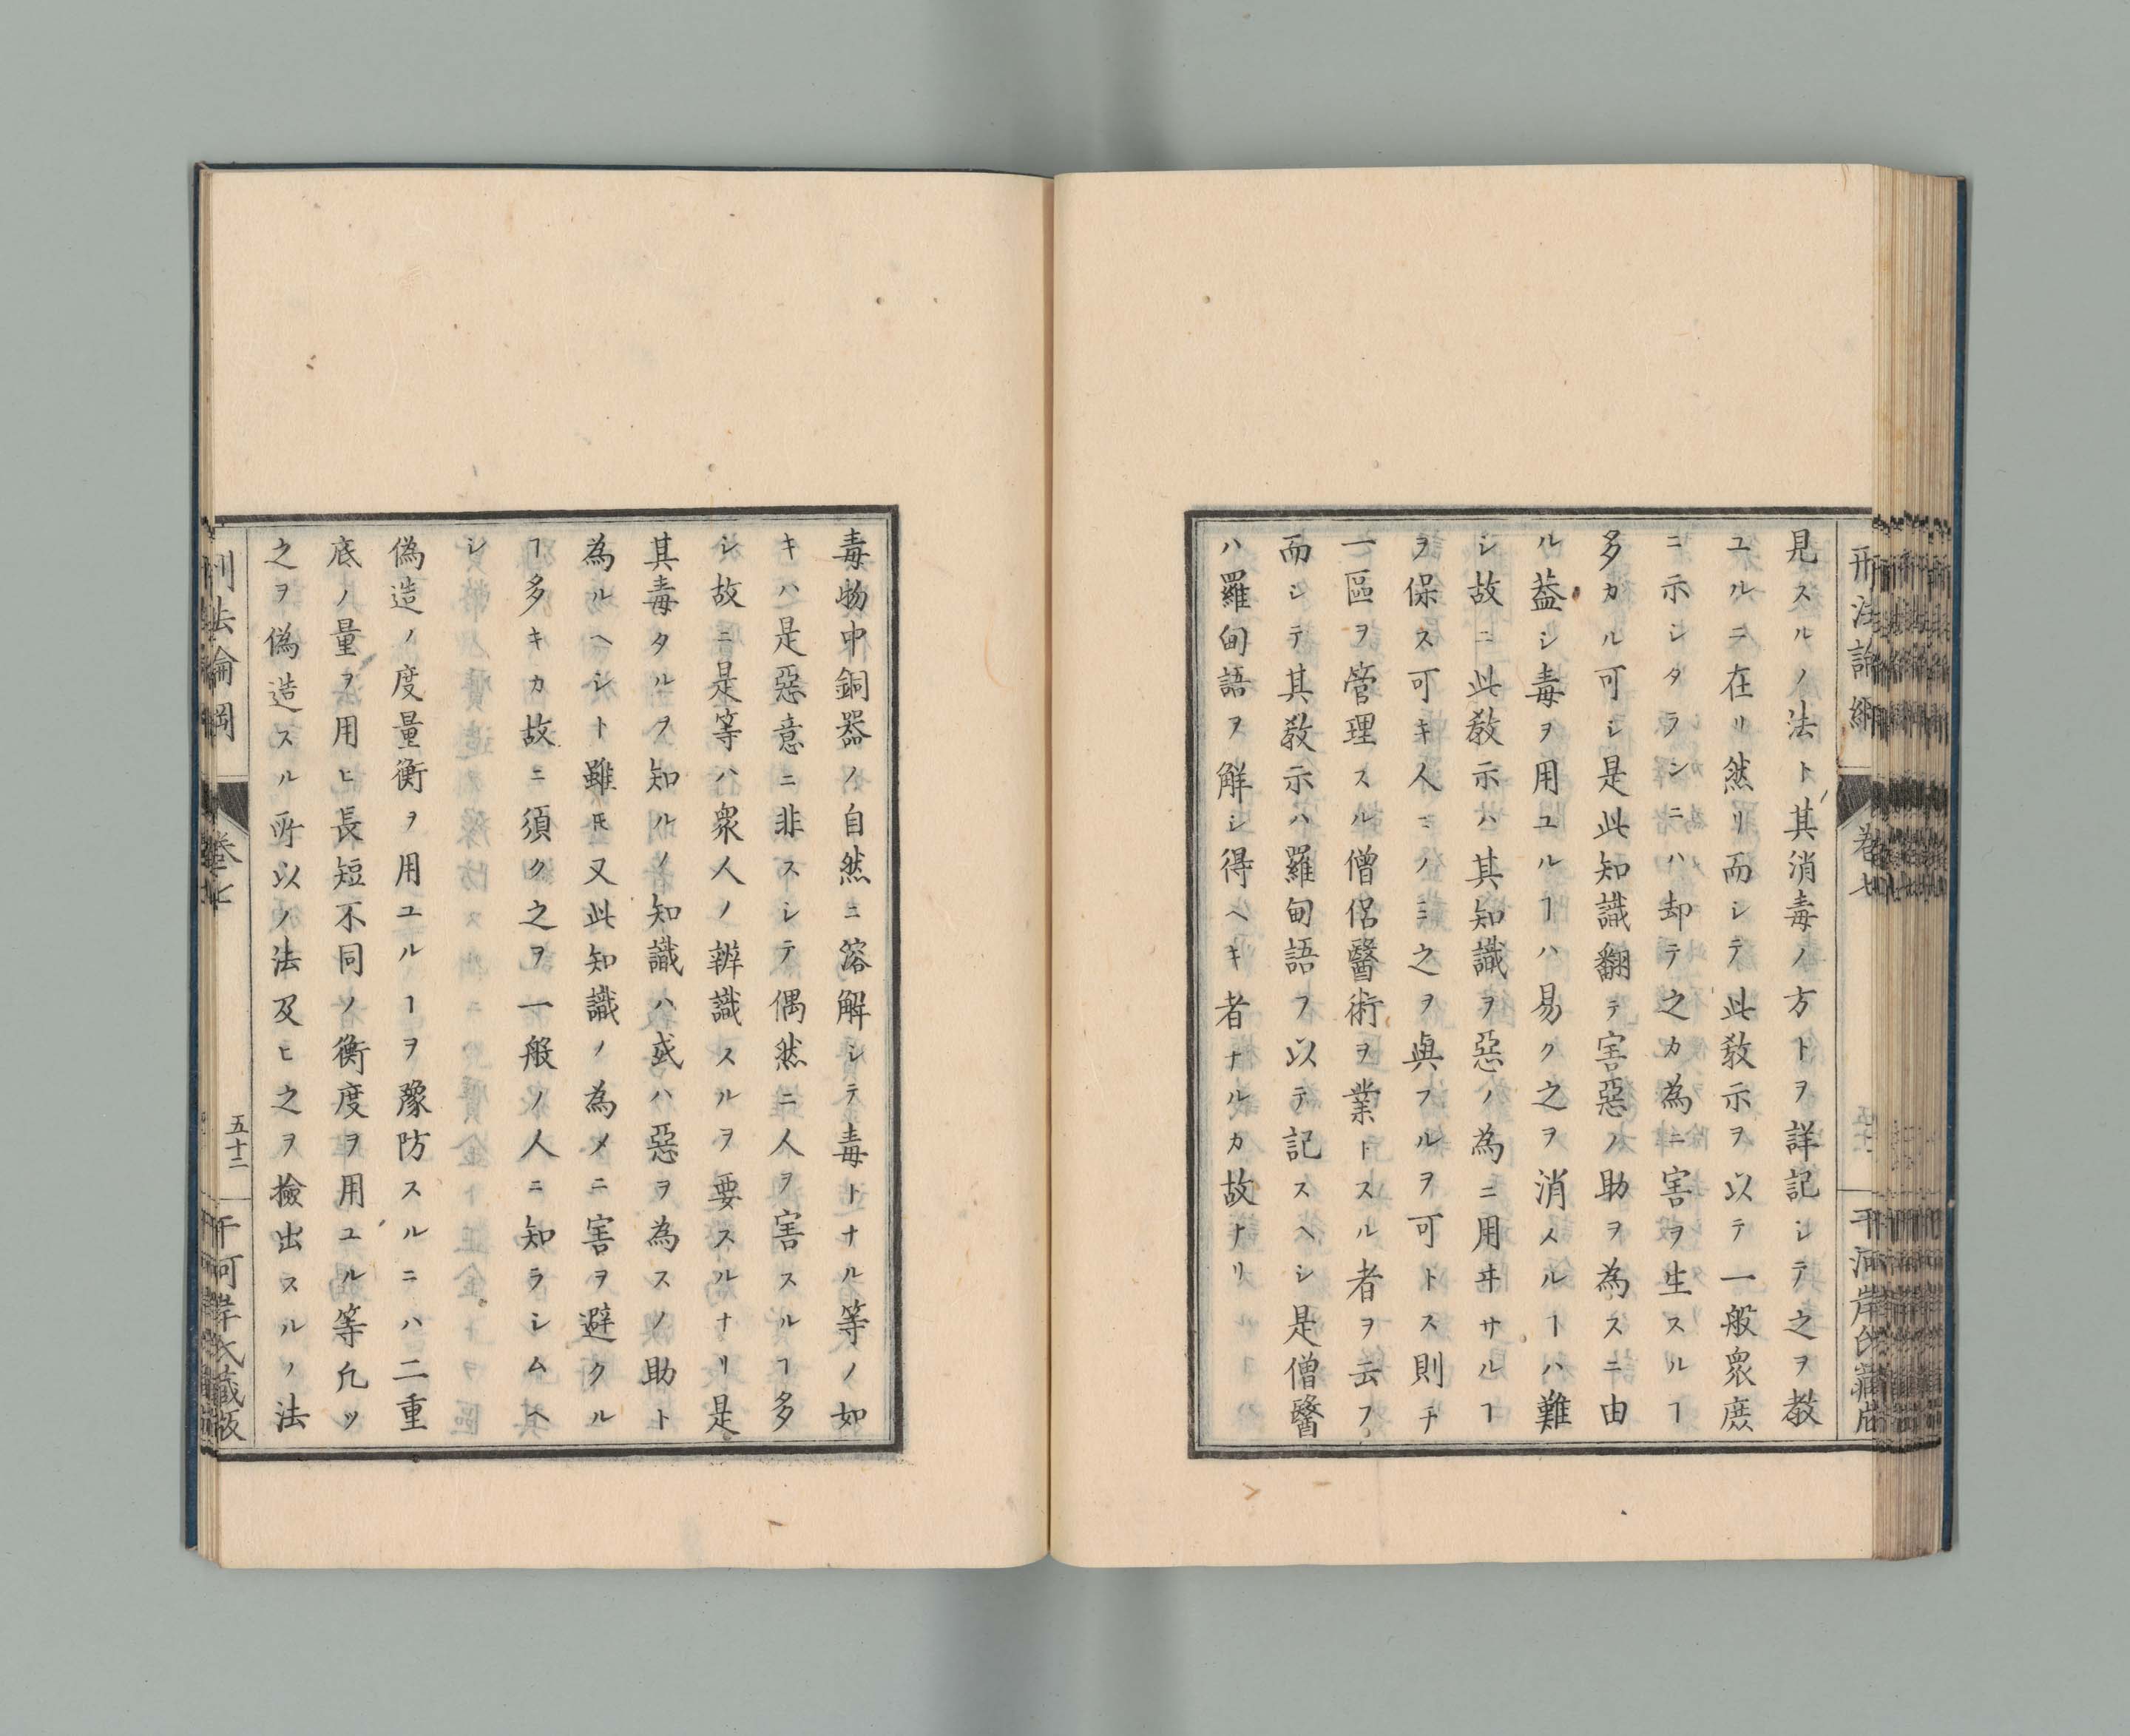 刑法論綱
卷七
見スルノ法ト其消毒ノ方トヲ詳記シテ之ヲ教
ユルニ在リ然リ而シテ此教示ヲ以テ一般衆庶
ニ示シタランニハ却テ之カ為ニ害ヲ生スルヿ
多カル可シ是此知識翻テ害惡ノ助ヲ為スニ由
ル葢シ毒ヲ用ユルヿハ易ク之ヲ消メルヿハ難
シ故ニ此教示ハ其知識ヲ惡ノ為ニ用ヰサルヿ
ヲ保ス可キ人ニノミ之ヲ與フルヲ可トス則チ
一區ヲ管理スル僧侶醫術ヲ業トスル者ヲ云フ
而シテ其教示ハ羅甸語ヲ以テ記スヘシ是僧醫
ハ羅甸語ヲ解シ得ヘキ者ナルカ故ナリ
毒物中銅器ノ自然ニ溶解シテ毒トナル等ノ如
キハ是惡意ニ非スシテ偶然ニ人ヲ害スルヿ多
シ故ニ是等ハ衆人ノ辨識スルヲ要スルナリ是
其毒タルヲ知ルノ知識ハ或ハ惡ヲ為スノ助ト
為ルヘシト雖𪜈又此知識ノ為メニ害ヲ避クル
ヿ多キカ故ニ須ク之ヲ一般ノ人ニ知ラシムヘ
シ
偽造ノ度量衡ヲ用ユルヿヲ豫防スルニハ二重
底ノ量ヲ用ヒ長短不同ノ衡度ヲ用ユル等凡ソ
之ヲ偽造スル所以ノ法及ヒ之ヲ撿出スルノ法
卷七
五十二